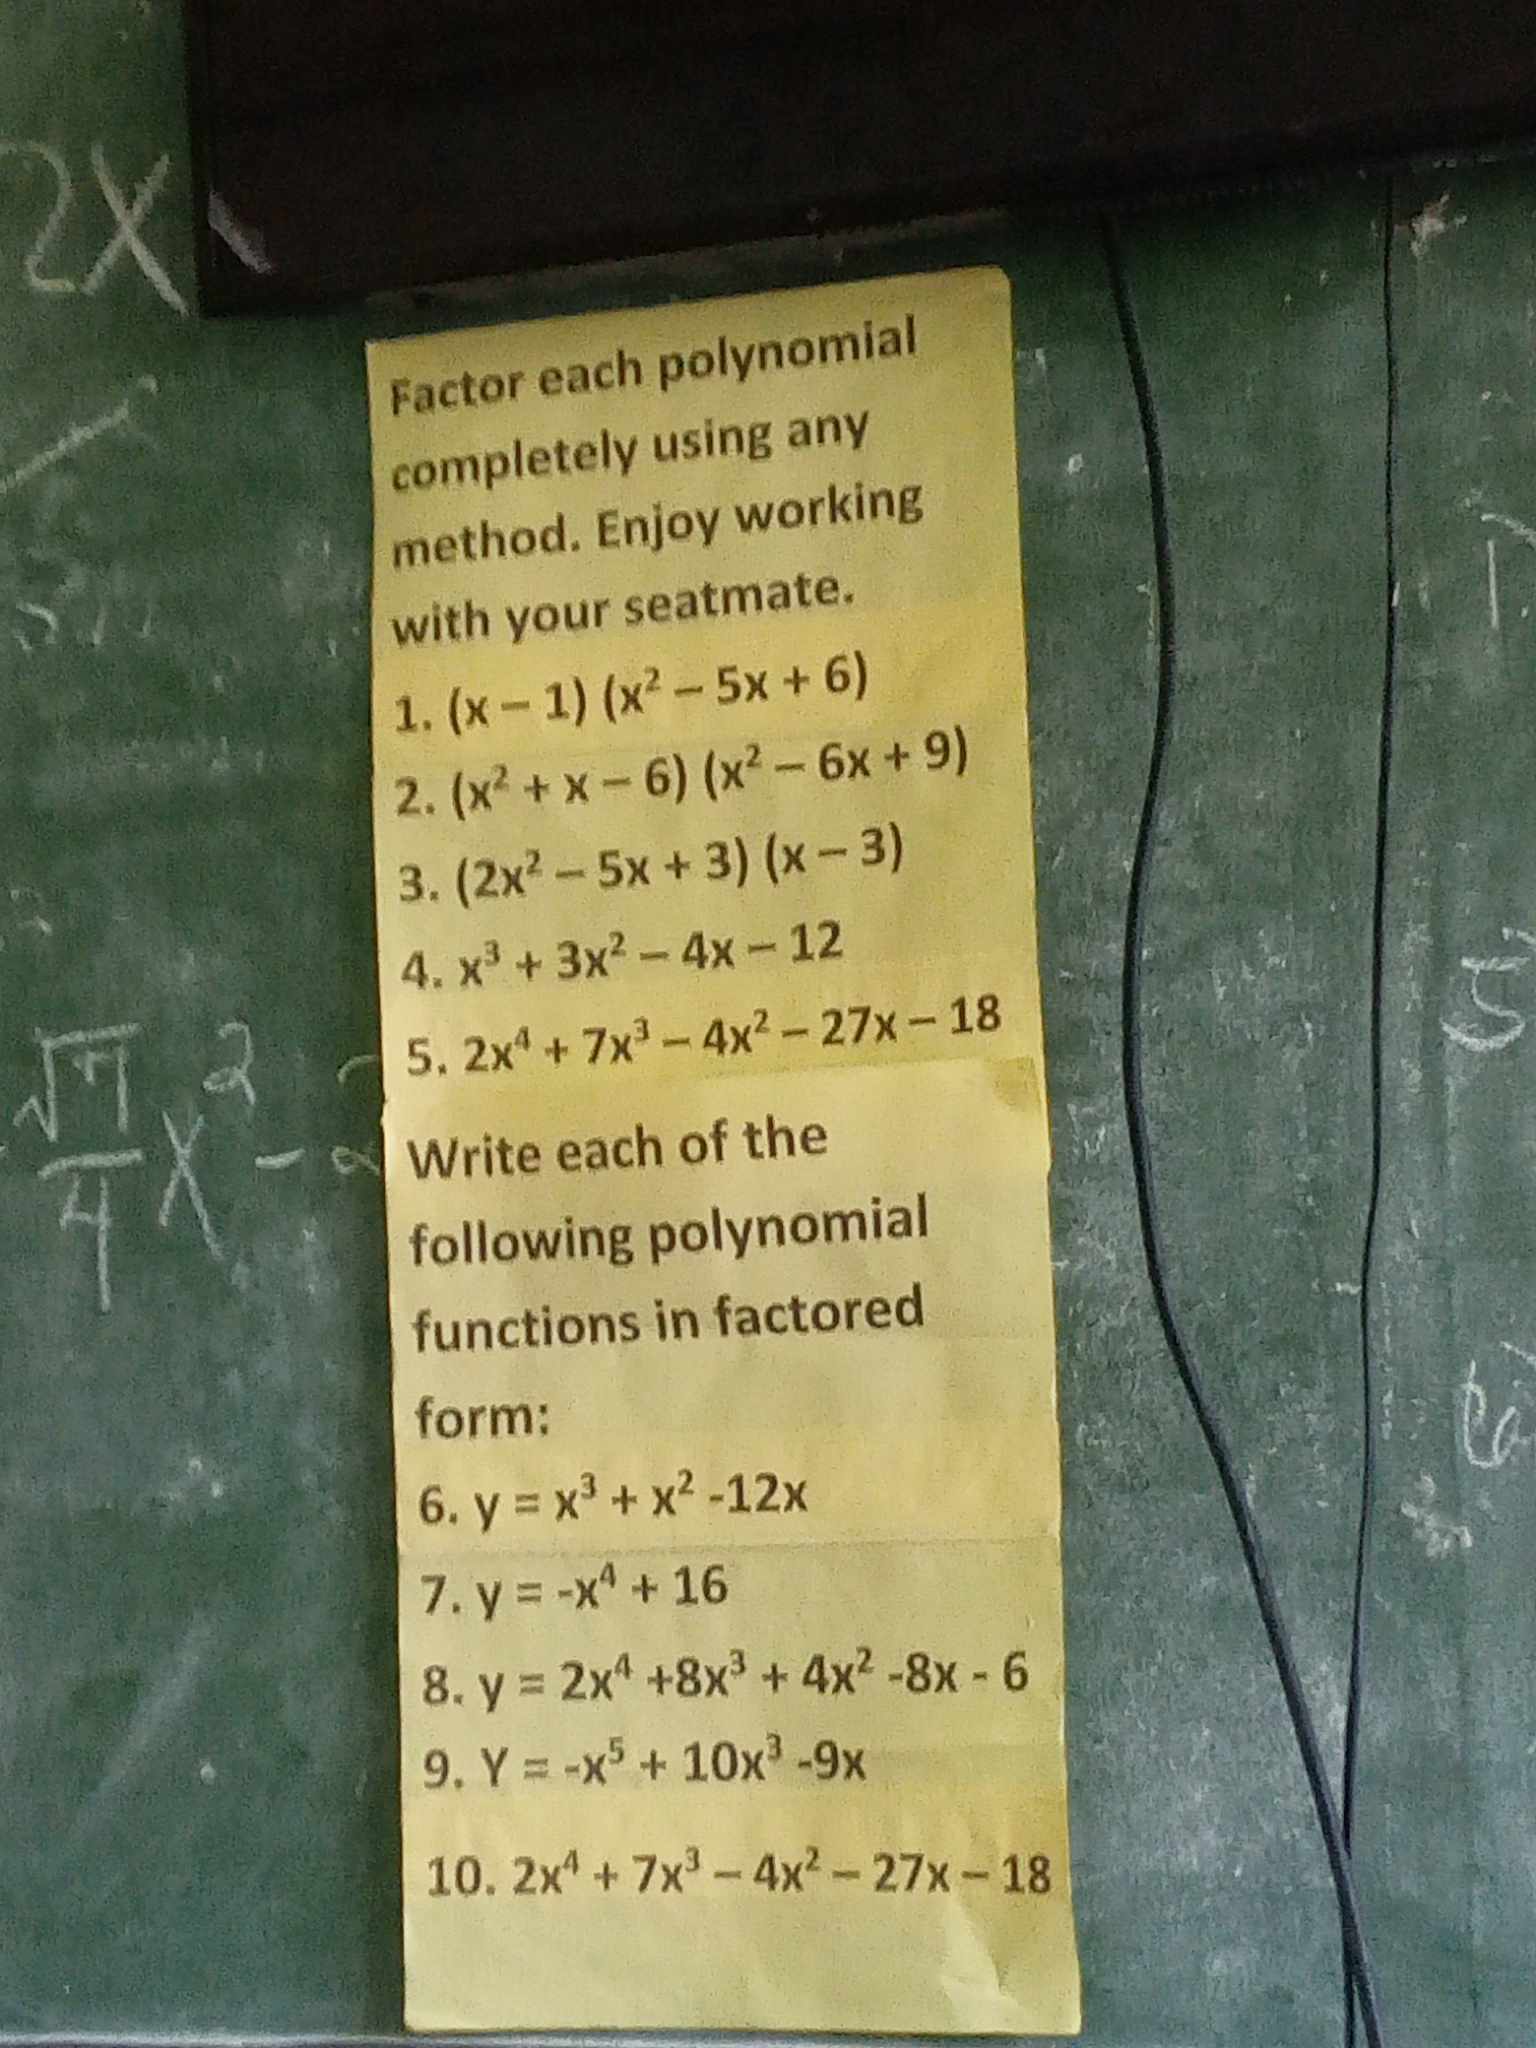 2x
Factor each polynomial
completely using any
method. Enjoy working
with your seatmate.
1. (x – 1) (x² – 5x + 6)
2. (x² + x – 6) (x² – 6x + 9)
3. (2x² – 5x + 3) (x – 3)
4. x³ + 3x² – 4x – 12
5. 2x⁴ + 7x³ – 4x² – 27x – 18
√7/4 x² -
Write each of the
following polynomial
functions in factored
form:
6. y = x³ + x² -12x
7. y = -x⁴ + 16
8. y = 2x⁴ +8x³ + 4x² -8x - 6
9. Y = -x⁵ + 10x³ -9x
10. 2x⁴ + 7x³ – 4x² – 27x – 18